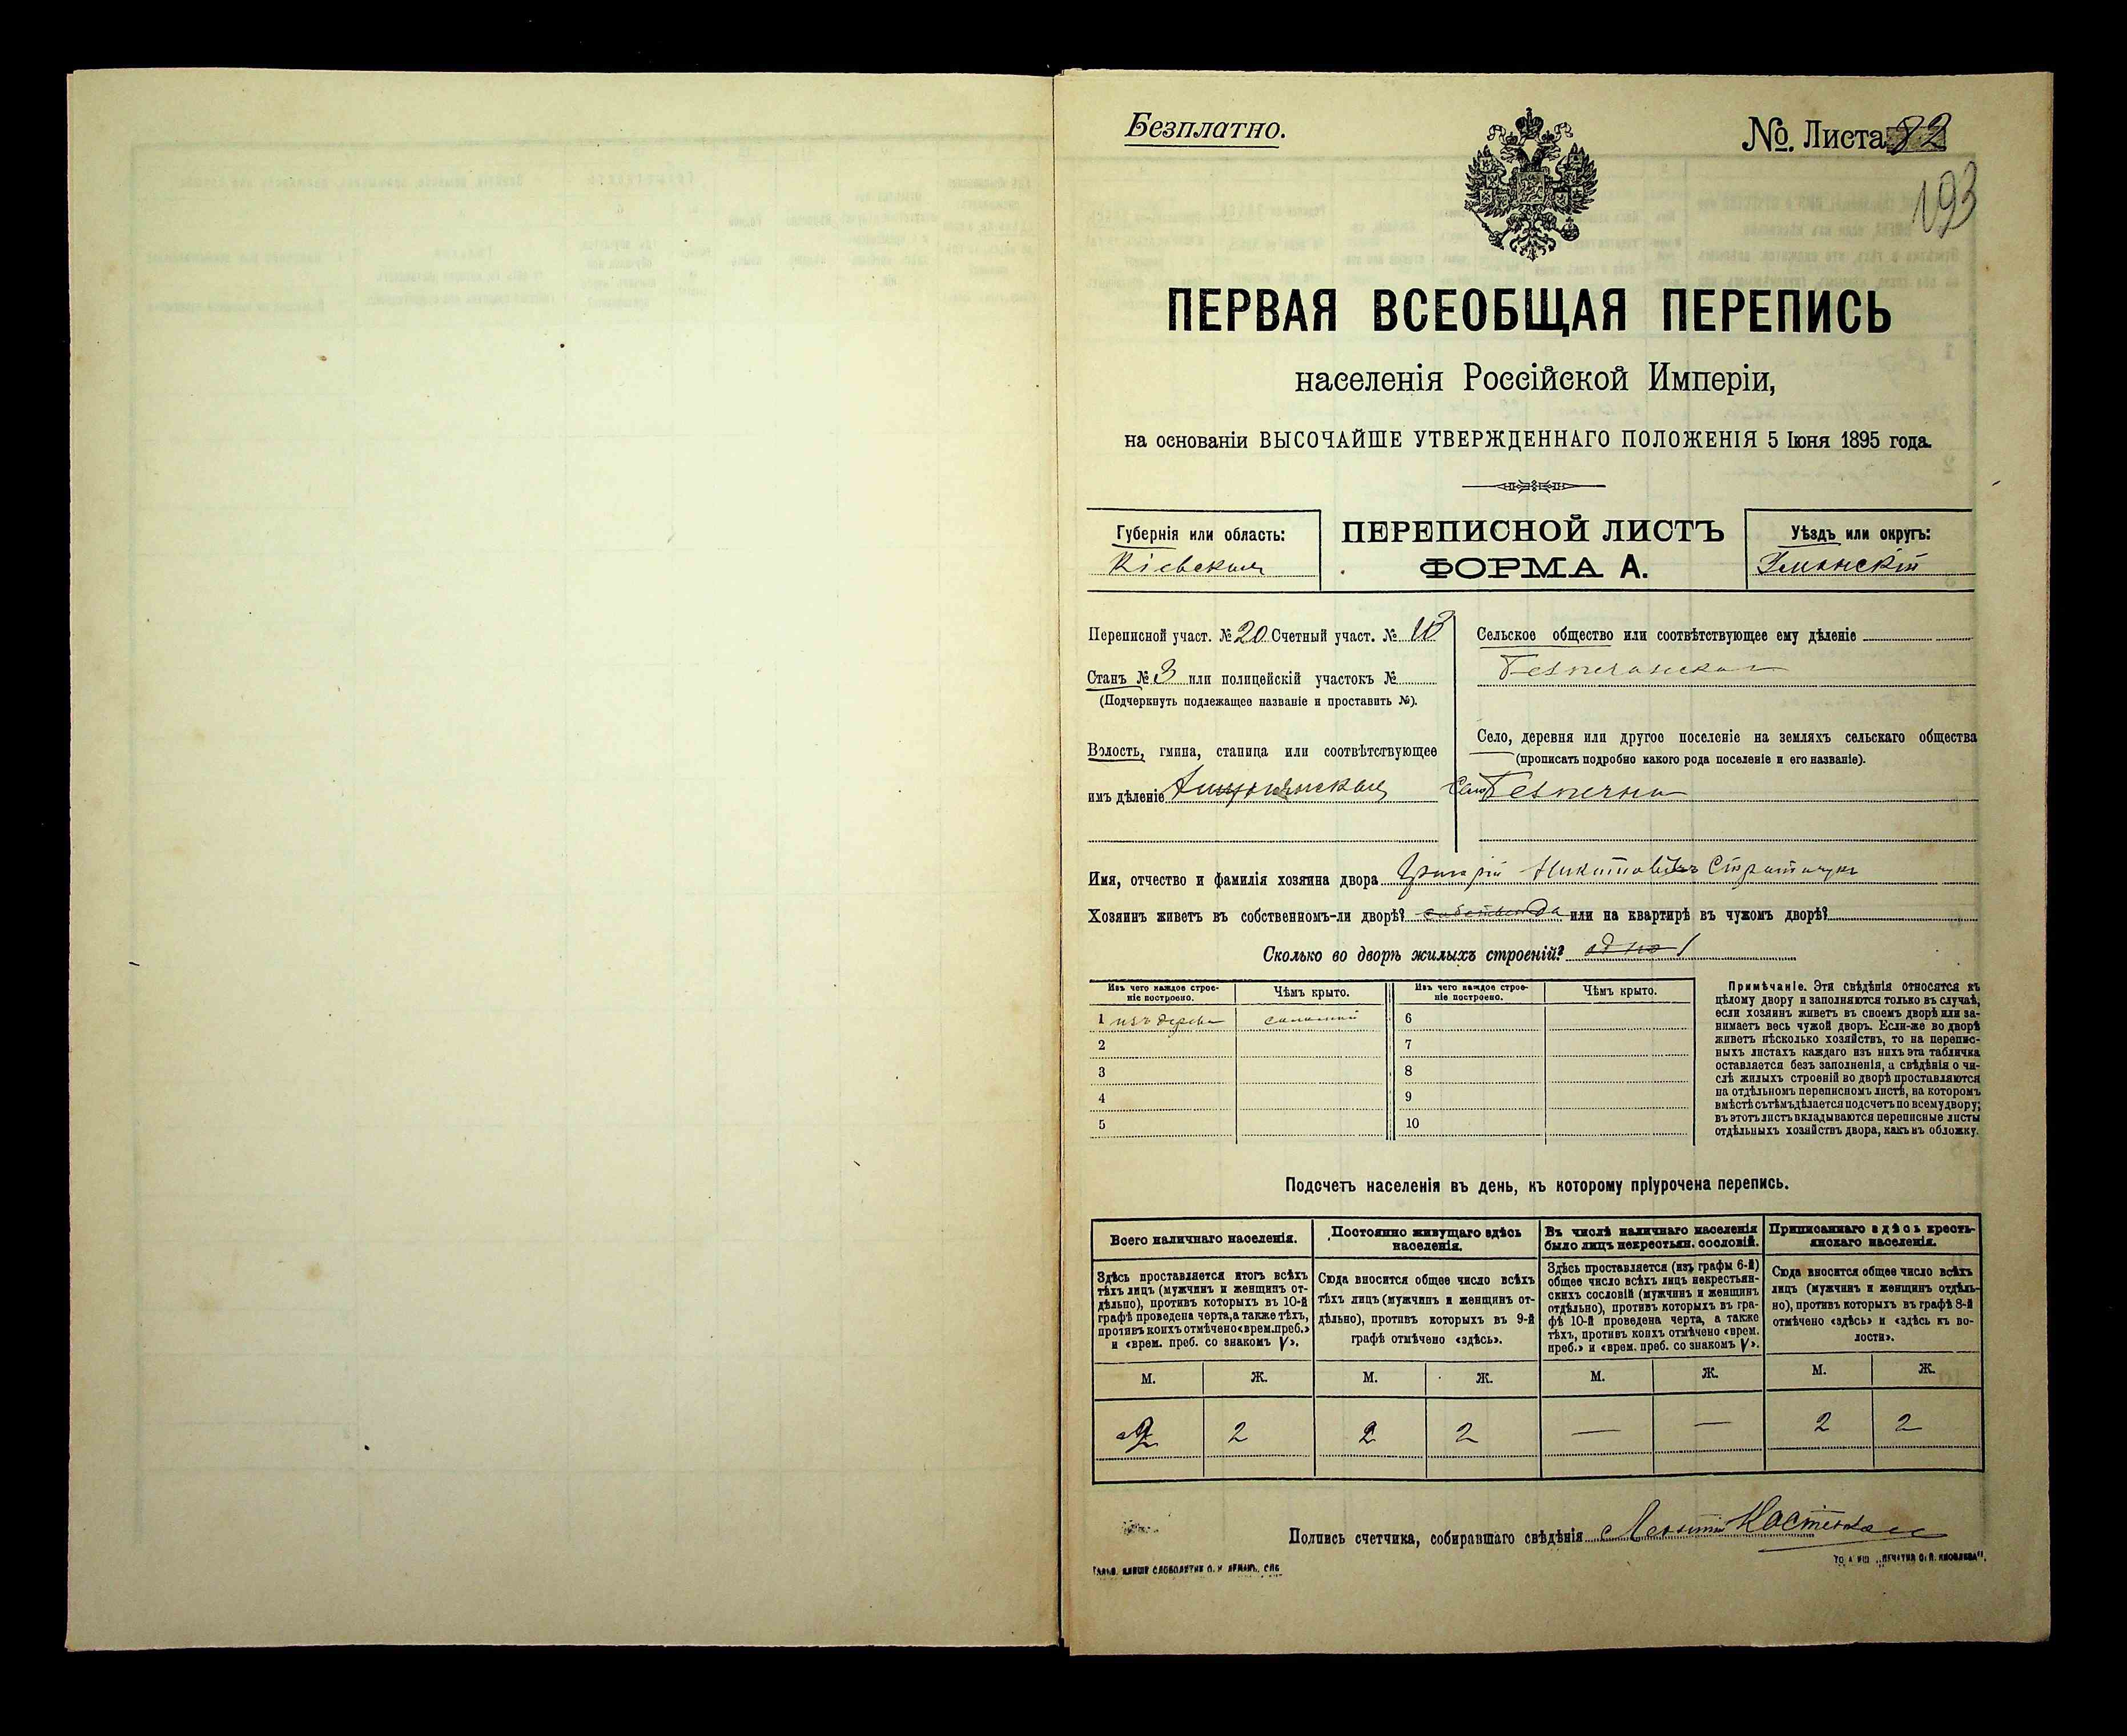 Безплатно.
№. Листа 82
193
ПЕРВАЯ ВСЕОБЩАЯ ПЕРЕПИСЬ
населенія Россійской Имперіи,
на основаніи ВЫСОЧАЙШЕ УТВЕРЖДЕННАГО ПОЛОЖЕНІЯ 5 Іюня 1895 года.
Губернія или область:
Кіевская
ПЕРЕПИСНОЙ ЛИСТЪ
ФОРМА А.
Уѣздъ или округъ:
Уманскій
Переписной участ. № 20 Счетный участ. №
Станъ № 3 или полицейскій участокъ №
(Подчеркнуть подлежащее названіе и проставить №).
Волость, гмина, станица или соотвѣтствующее
имъ дѣленіе
Сельское общество или соотвѣтствующее ему дѣленіе
Безпечанская
Село, деревня или другое поселеніе на земляхъ сельскаго общества
(прописать подробно какого рода поселеніе и его названіе).
Село Безпечна
Имя, отчество и фамилія хозяина двора Григорій Никитовичъ
Хозяинъ живетъ въ собственномъ-ли дворѣ? да или на квартирѣ въ чужомъ дворѣ?
Сколько во дворѣ жилыхъ строеній? одно 1
Изъ чего каждое строе-
ніе построено.
Чѣмъ крыто.
Изъ чего каждое строе-
ніе построено.
Чѣмъ крыто.
1 изъ дерева соломой
2
3
4
5
6
7
8
9
10
Примѣчаніе. Эти свѣдѣнія относятся къ
цѣлому двору и заполняются только въ случаѣ,
если хозяинъ живетъ въ своемъ дворѣ или за-
нимаетъ весь чужой дворъ. Если-же во дворѣ
живетъ нѣсколько хозяйствъ, то на перепис-
ныхъ листахъ каждаго изъ нихъ эта табличка
оставляется безъ заполненія, а свѣдѣнія о чи-
слѣ жилыхъ строеній во дворѣ проставляются
на отдѣльномъ переписномъ листѣ, на которомъ
вмѣстѣ съ тѣмъ дѣлается подсчетъ по всему двору;
въ этотъ листъ вкладываются переписные листы
отдѣльныхъ хозяйствъ двора, какъ въ обложку.
Подсчетъ населенія въ день, къ которому пріурочена перепись.
Всего наличнаго населенія.
Здѣсь проставляется итогъ всѣхъ
тѣхъ лицъ (мужчинъ и женщинъ от-
дѣльно), противъ которыхъ въ 10-й
графѣ проведена черта, а также тѣхъ,
противъ коихъ отмѣчено «врем. преб.»
и «врем. преб. со знакомъ V».
Постоянно живущаго здѣсь
населенія.
Сюда вносится общее число всѣхъ
тѣхъ лицъ (мужчинъ и женщинъ от-
дѣльно), противъ которыхъ въ 9-й
графѣ отмѣчено «здѣсь».
Въ числѣ наличнаго населенія
было лицъ некрестьян. сословій.
Здѣсь проставляется (изъ графы 6-й)
общее число всѣхъ лицъ некрестьян-
скихъ сословій (мужчинъ и женщинъ
отдѣльно), противъ которыхъ въ гра-
фѣ 10-й проведена черта, а также
тѣхъ, противъ коихъ отмѣчено «врем.
преб.» и «врем. преб. со знакомъ V».
Приписаннаго здѣсь кресть-
янскаго населенія.
Сюда вносится общее число всѣхъ
лицъ (мужчинъ и женщинъ отдѣль-
но), противъ которыхъ въ графѣ 8-й
отмѣчено «здѣсь» и «здѣсь къ во-
лости».
М. Ж. М. Ж. М. Ж. М. Ж.
2 2 2 2 — — 2 2
Подпись счетчика, собиравшаго свѣдѣнія